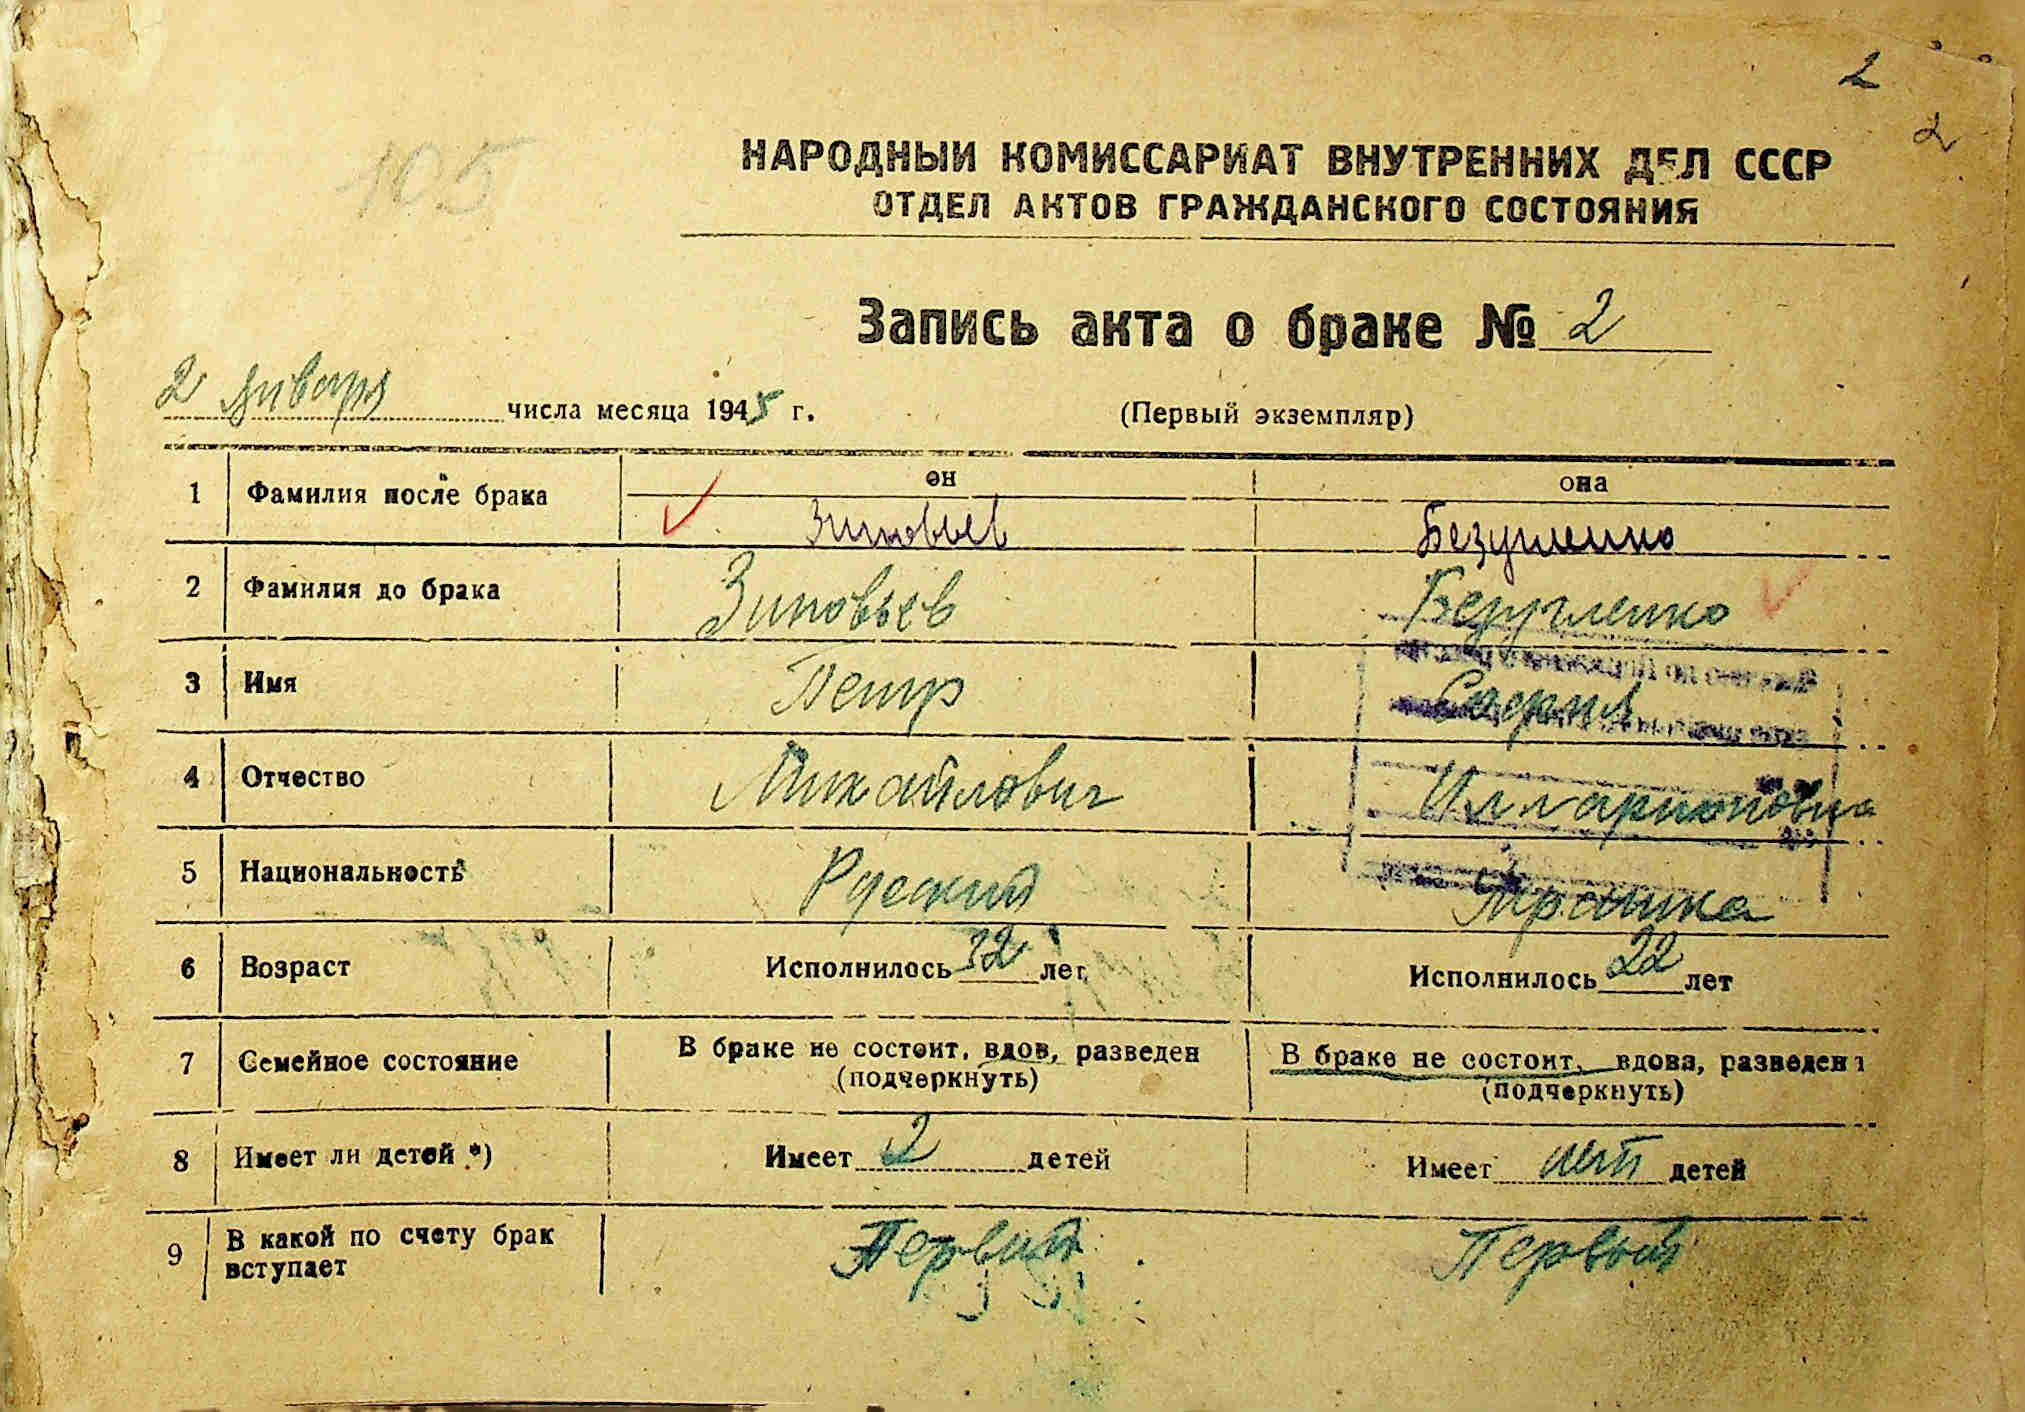 2
2
105
НАРОДНЫЙ КОМИССАРИАТ ВНУТРЕННИХ ДЕЛ СССР
ОТДЕЛ АКТОВ ГРАЖДАНСКОГО СОСТОЯНИЯ
Запись акта о браке № 2
2 января числа месяца 1945 г. (Первый экземпляр)
1 Фамилия после брака он она
Зиновьев Безугленко
2 Фамилия до брака Зиновьев Безугленко
3 Имя Петр София
4 Отчество Михайлович Илларионовна
5 Национальность Русский Украинка
6 Возраст Исполнилось 32 лет Исполнилось 22 лет
7 Семейное состояние В браке не состоит, вдов, разведен В браке не состоит, вдова, разведена
(подчеркнуть) (подчеркнуть)
8 Имеет ли детей *) Имеет 2 детей Имеет нет детей
9 В какой по счету брак вступает Первый Первый